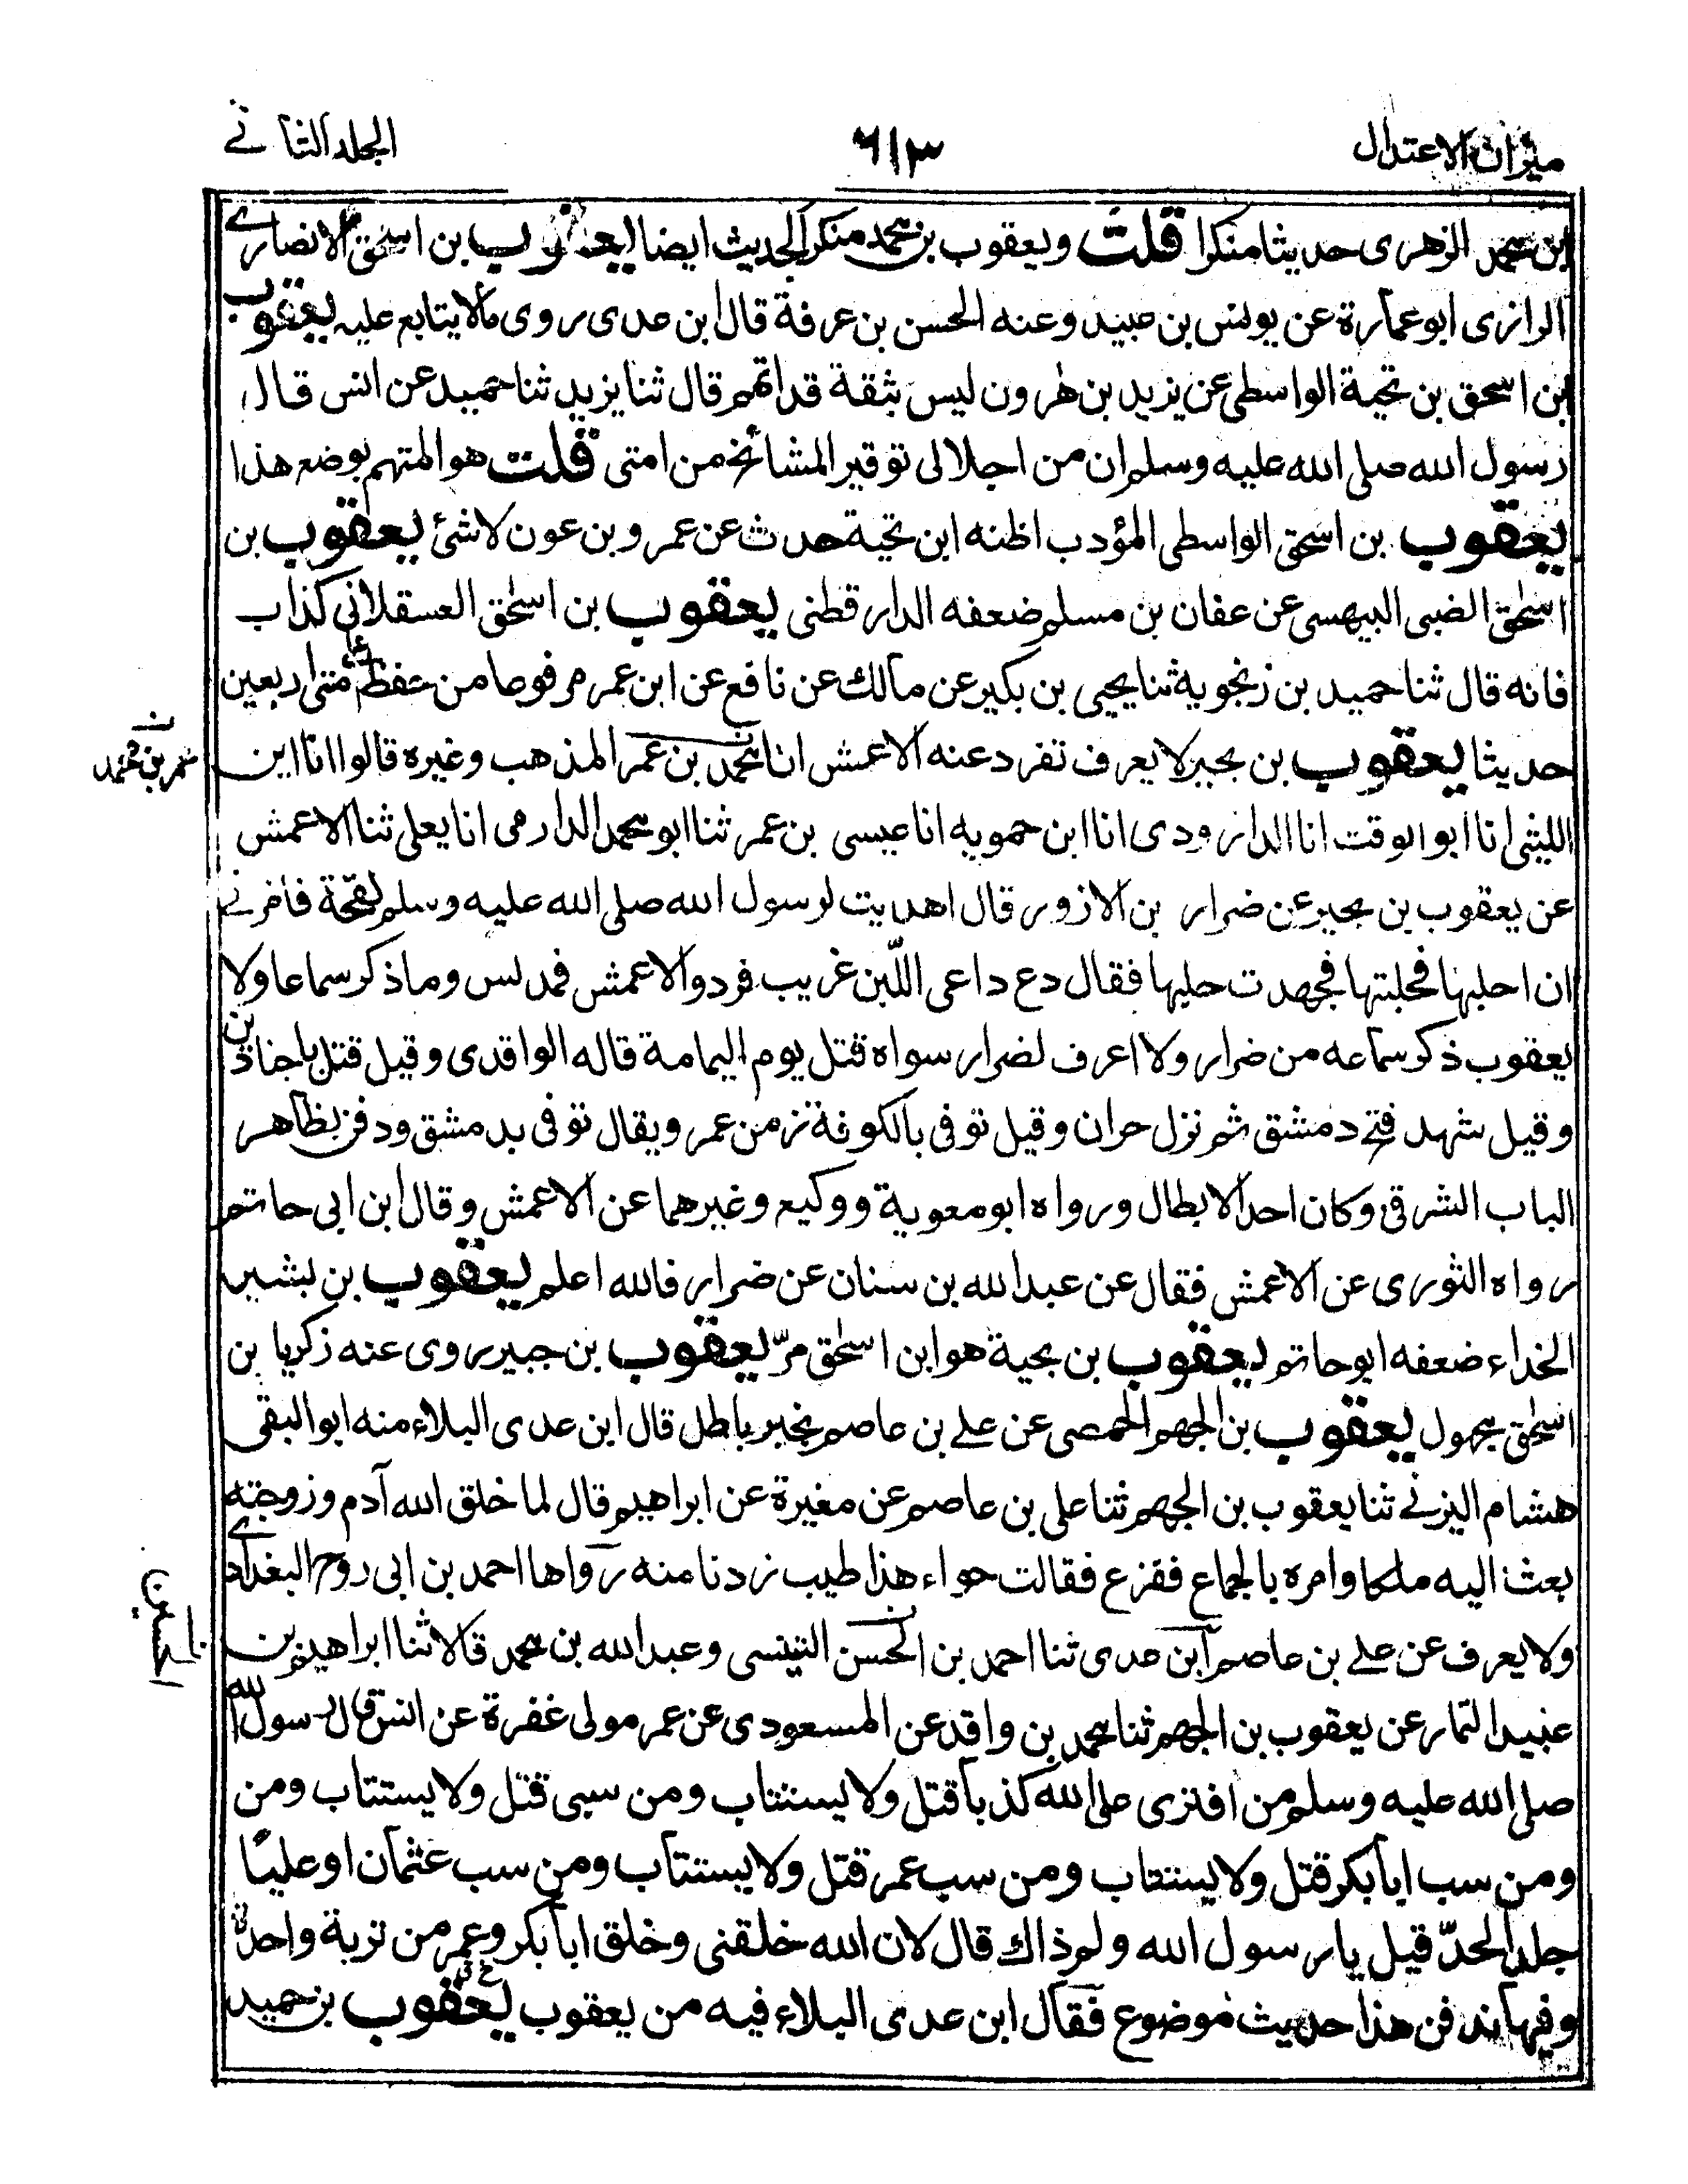 ميزان الاعتدال
٦١٣
الجلد الثاني
ابن محمد الزهرى حديثا منكرا قلت ويعقوب بن محمد منكر الحديث ايضا يعقوب بن اسحق الانصارے
الرازى ابو عمارة عن يونس بن عبيد وعنه الحسن بن عرفة قال ابن عدى روى مالا يتابع عليه يعقوب
ابن اسحق بن تحية الواسطى عن يزيد بن هٰرون ليس بثقة قد اتهم قال ثنا يزيد ثنا حميد عن انس قال
رسول الله صلى الله عليه وسلم ان من اجلالى توقير المشائخ من امتى قلت هو المتهم بوضع هذا
يعقوب بن اسحق الواسطى المؤدب اظنه ابن تحية حدث عن عمرو بن عون لاشئ يعقوب بن
اسحٰق الضبى البيهسى عن عفان بن مسلم ضعفه الدارقطنى يعقوب بن اسحٰق العسقلانى كذاب
فانه قال ثنا حميد بن زنجوية ثنا يحيى بن بكير عن مالك عن نافع عن ابن عمر مرفوعا من حفظ على متى اربعين
حديثا يعقوب بن بحير لا يعرف تفرد عنه الاعمش انا محمد بن عمر المذهب وغيره قالوا انا ابن
عمر بن محمد
الليثى انا ابو الوقت انا الداروودى انا ابن حمويه انا عيسى بن عمر ثنا ابو محمد الدارمى انا يعلى ثنا الاعمش
عن يعقوب بن بحير عن ضرار بن الازور قال اهديت لرسول الله صلى الله عليه وسلم لقحة فامرنے
ان احلبها فحلبتها فجهدت حلبها فقال دع داعى اللّبن غريب فرد والاعمش فمدلس وما ذكر سماعا ولا
يعقوب ذكر سماعه من ضرار ولا اعرف لضرار سواه قتل يوم اليمامة قاله الواقدى وقيل قتل باجنادين
وقيل شهد فتح دمشق ثم نزل حران وقيل توفى بالكوفة زمن عمر ويقال توفى بدمشق ودفن بظاهر
الباب الشرقى وكان احد الابطال ورواه ابو معوية ووكيع وغيرهما عن الاعمش وقال ابن ابى حاتم
رواه الثورى عن الاعمش فقال عن عبد الله بن سنان عن ضرار فالله اعلم يعقوب بن بشير
الخداء ضعفه ابو حاتم يعقوب بن بحية هو ابن اسحٰق مرّ يعقوب بن جبير روى عنه زكريا بن
اسحٰق مجهول يعقوب بن الجهم الحمصى عن علے بن عاصم بخبر باطل قال ابن عدى البلاء منه ابو البقى
هشام اليزنے ثنا يعقوب بن الجهم ثنا على بن عاصم عن مغيرة عن ابراهيم قال لما خلق الله آدم وزوجته
بعث اليه ملكا وامره بالجماع ففزع فقالت حواء هذا طيب زدنا منه رواها احمد بن ابى روح البغدادے
ولا يعرف عن علے بن عاصم ابن عدى ثنا احمد بن الحسن التنيسى وعبد الله بن محمد قالا ثنا ابراهيم بن
الحسين
عبيد التمار عن يعقوب بن الجهم ثنا محمد بن واقد عن المسعودى عن عمر مولى غفرة عن انس قال رسول الله
صلى الله عليه وسلم من افترى على الله كذبا قتل ولا يستتاب ومن سبى قتل ولا يستتاب ومن
ومن سب ابا بكر قتل ولا يستتاب ومن سب عمر قتل ولا يستتاب ومن سب عثمان او عليًا
جلد الحدّ قيل يا رسول الله ولم ذاك قال لان الله خلقنى وخلق ابا بكر وعمر من تربة واحدة
وفيها ندفن هذا حديث موضوع فقال ابن عدى البلاء فيه من يعقوب يعقوب بن حميد